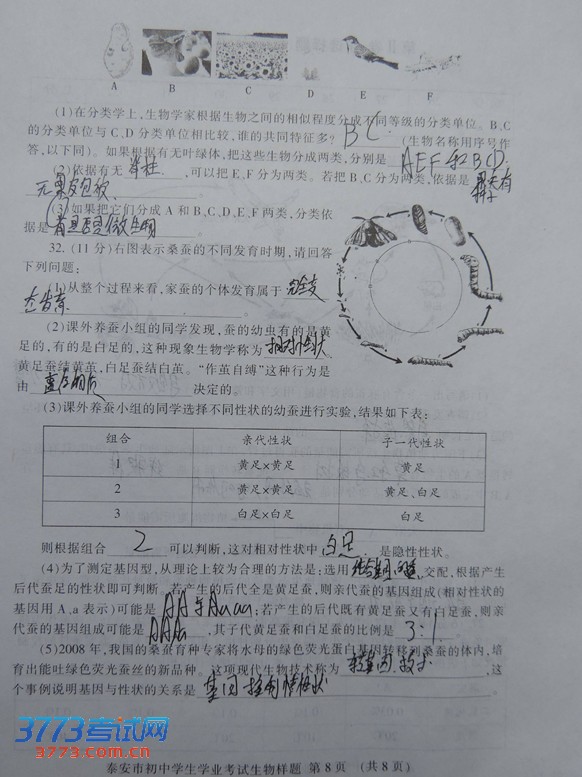 A B C D E F
(1)在分类学上,生物学家根据生物之间的相似程度分成不同等级的分类单位。B、C
的分类单位与C、D分类单位相比较,谁的共同特征多? B C (生物名称用序号作
答,以下同)。如果根据有无叶绿体,把这些生物分成两类,分别是 AEF和BCD.
(2)依据有无 脊柱 ,可以把E、F分为两类。若把B、C分为两类,依据是
无果皮包被
(3)如果把它们分成A和B、C、D、E、F两类,分类依
据是
32. (11分)右图表示桑蚕的不同发育时期,请回答
下列问题:
(1)从整个过程来看,家蚕的个体发育属于 完全变
态发育
(2)课外养蚕小组的同学发现,蚕的幼虫有的是黄
足的,有的是白足的,这种现象生物学称为 相对性状
黄足蚕结黄茧,白足蚕结白茧。“作茧自缚”这种行为是
由 遗传物质 决定的。
(3)课外养蚕小组的同学选择不同性状的幼蚕进行实验,结果如下表:
组合 亲代性状 子一代性状
1 黄足×黄足 黄足
2 黄足×黄足 黄足、白足
3 白足×白足 白足
则根据组合 2 可以判断,这对相对性状中 白足 是隐性性状。
(4)为了测定基因型,从理论上较为合理的方法是:选用 交配,根据产生
后代蚕足的性状即可判断。若产生的后代全是黄足蚕,则亲代蚕的基因组成(相对性状的
基因用A、a表示)可能是 ;若产生的后代既有黄足蚕又有白足蚕,则亲
代蚕的基因组成可能是 ,其子代黄足蚕和白足蚕的比例是 3:1
(5)2008年,我国的桑蚕育种专家将水母的绿色荧光蛋白基因转移到桑蚕的体内,培
育出能吐绿色荧光蚕丝的新品种。这项现代生物技术称为 转基因技术 ,这
个事例说明基因与性状的关系是 基因控制性状 。
3773考试网
3773.com.cn
泰安市初中学生学业考试生物样题 第8页 (共8页)